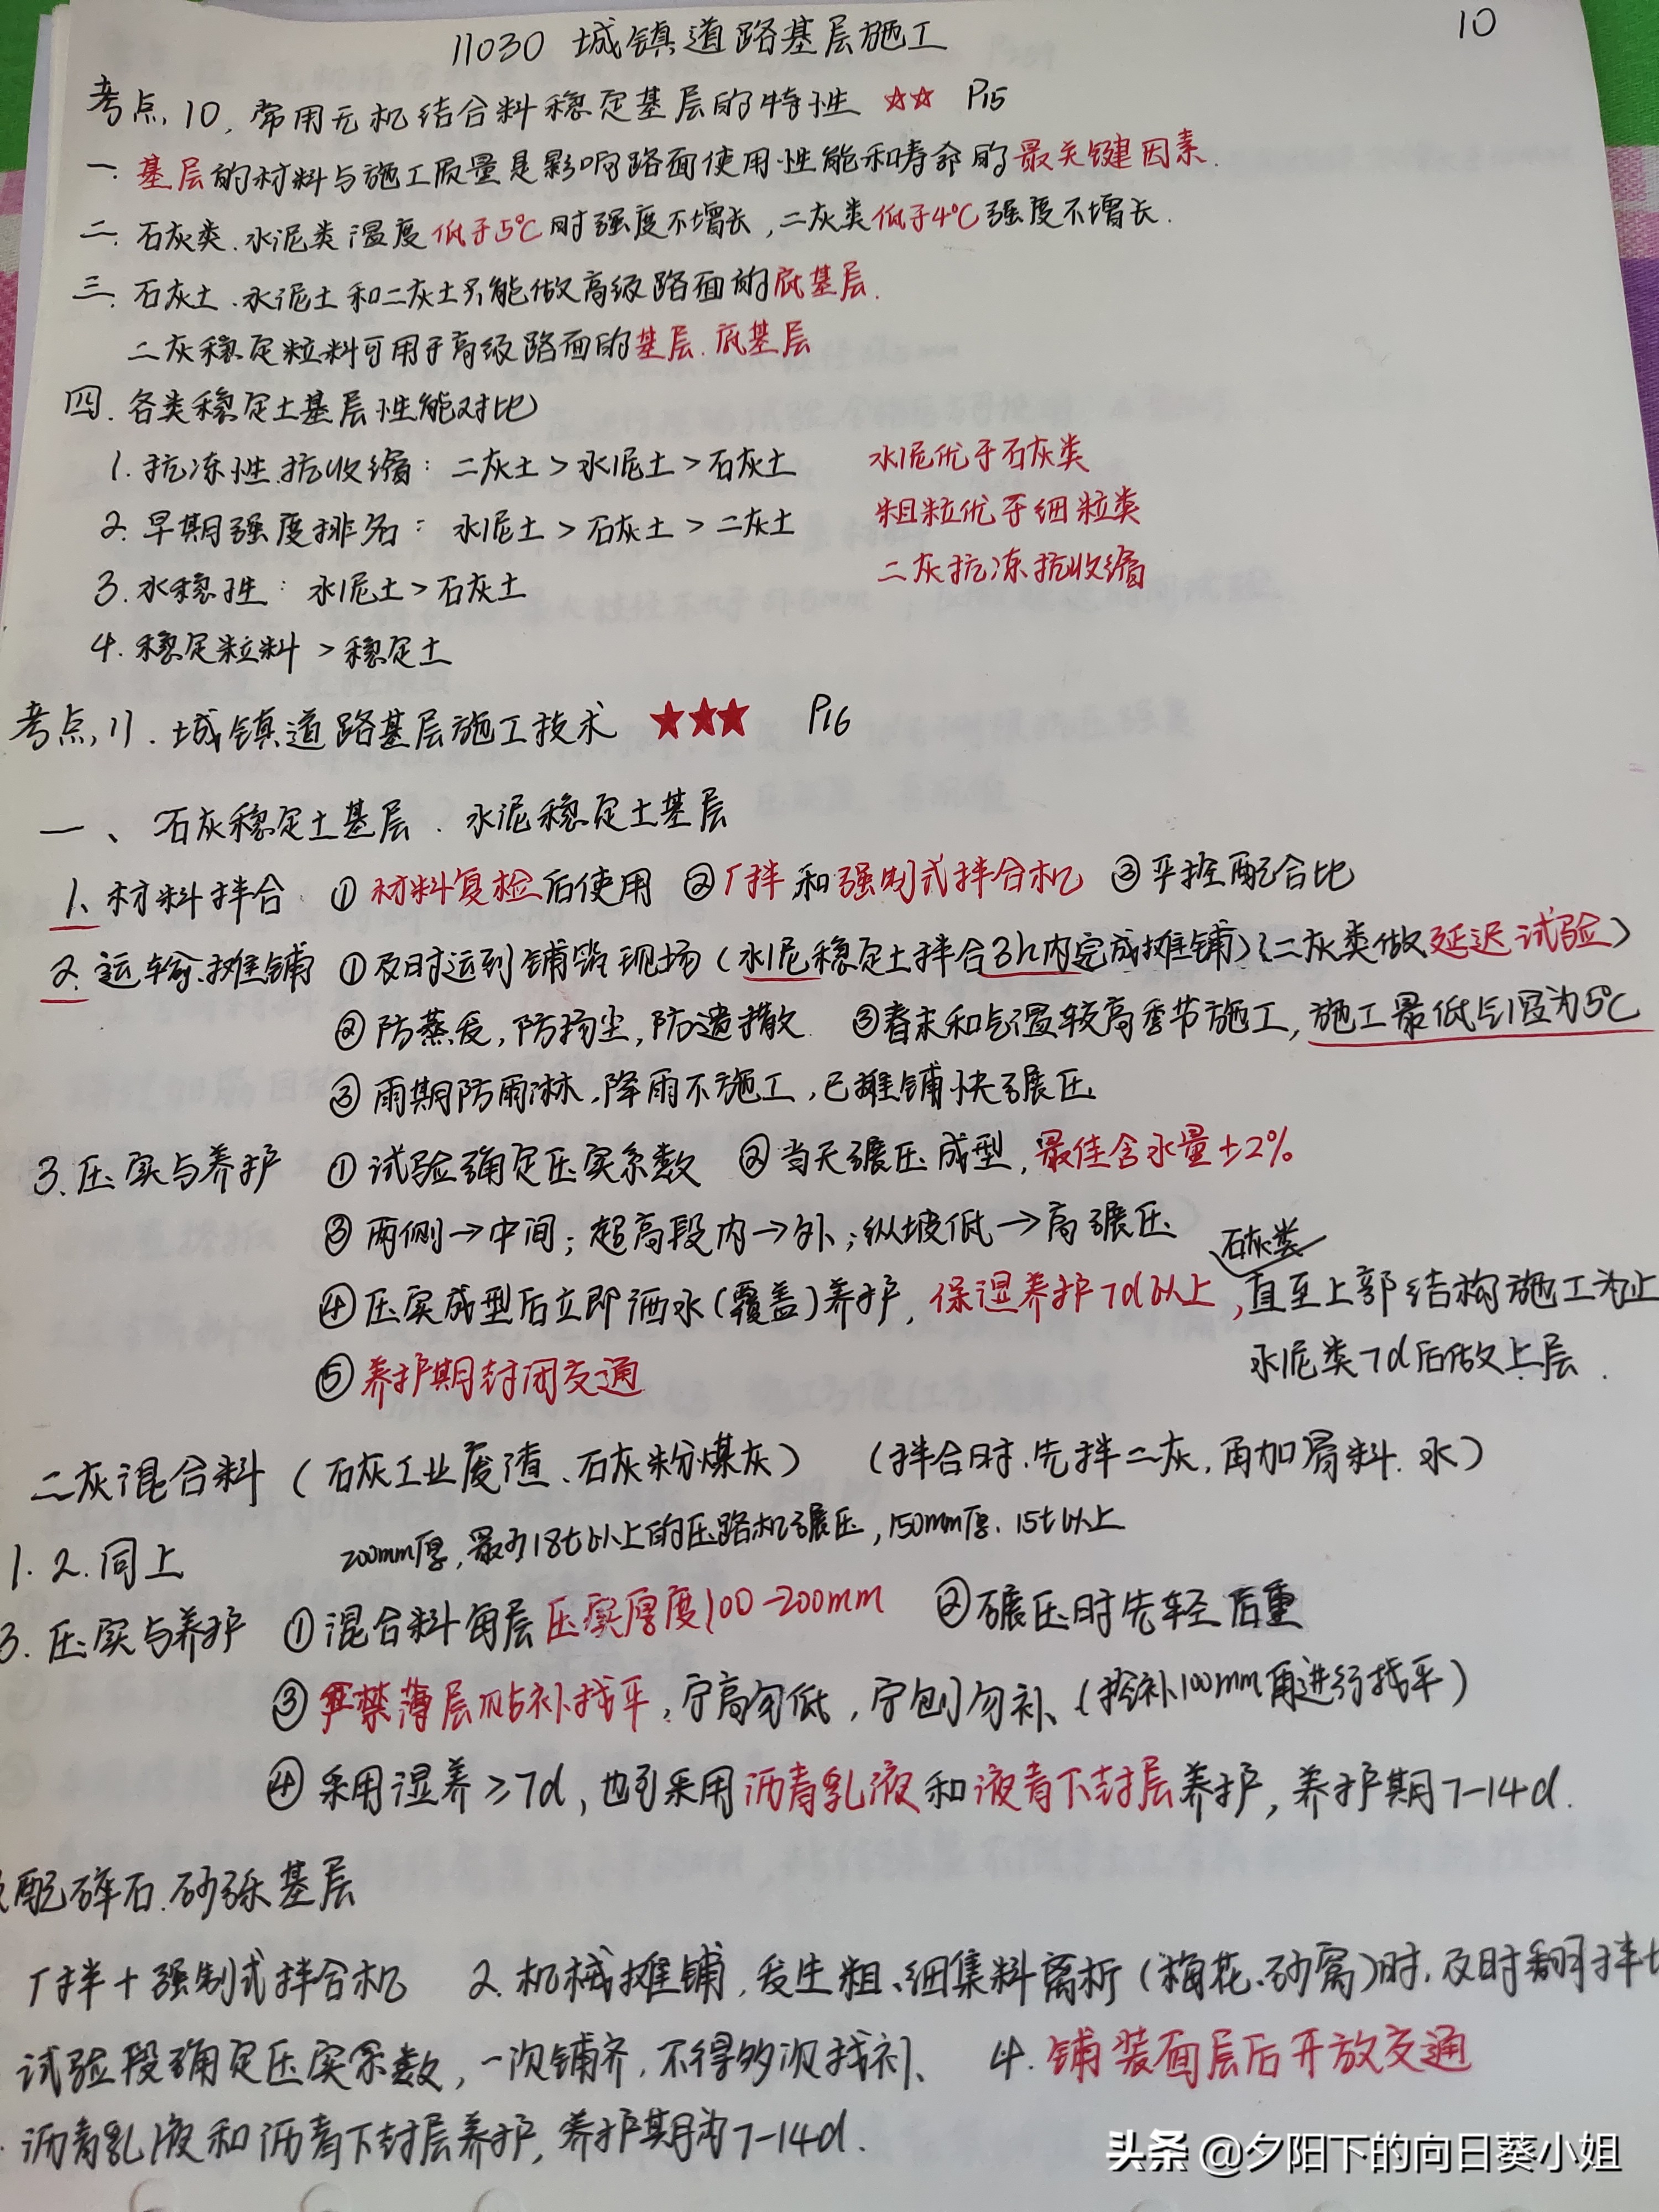 11030 城镇道路基层施工
10
考点,10,常用无机结合料稳定基层的特性 ☆☆ P15
一.基层的材料与施工质量是影响路面使用性能和寿命的最关键因素.
二.石灰类.水泥类温度低于5℃时强度不增长,二灰类低于4℃强度不增长.
三.石灰土.水泥土和二灰土只能做高级路面的底基层.
二灰稳定粒料可用于高级路面的基层.底基层
四.各类稳定土基层性能对比
1.抗冻性.抗收缩:二灰土>水泥土>石灰土 水泥优于石灰类
2.早期强度排名:水泥土>石灰土>二灰土 粗粒优于细粒类
3.水稳性:水泥土>石灰土 二灰抗冻抗收缩
4.稳定粒料>稳定土
考点,11.城镇道路基层施工技术 ★★★ P16
一、石灰稳定土基层.水泥稳定土基层
1、材料拌合 ①材料复检后使用 ②厂拌和强制式拌合机 ③严控配合比
2.运输.摊铺 ①及时运到铺筑现场(水泥稳定土拌合3h内完成摊铺)(二灰类做延迟试验)
②防蒸发,防扬尘,防遗撒 ③春末和气温较高季节施工,施工最低气温为5℃
③雨期防雨淋.降雨不施工,已摊铺快碾压
3.压实与养护 ①试验确定压实系数 ②当天碾压成型,最佳含水量±2%
③两侧→中间;超高段内→外;纵坡低→高碾压
石灰类
④压实成型后立即洒水(覆盖)养护,保湿养护7d以上,直至上部结构施工为止
水泥类7d后做上层.
⑤养护期封闭交通
二灰混合料(石灰工业废渣、石灰粉煤灰) (拌合时.先拌二灰,再加骨料.水)
1.2.同上 200mm厚,最少18t以上的压路机碾压,150mm厚.15t以上
3.压实与养护 ①混合料每层压实厚度100-200mm ②碾压时先轻后重
③严禁薄层贴补找平,宁高勿低,宁刨勿补、(挖补100mm再进行找平)
④采用湿养≥7d,也可采用沥青乳液和液青下封层养护,养护期7-14d.
配碎石.砂砾基层
厂拌+强制式拌合机 2.机械摊铺,发生粗、细集料离析(梅花、砂窝)时,及时翻拌
试验段确定压实系数,一次铺齐.不得多次找补、 4.铺装面层后开放交通
沥青乳液和沥青下封层养护,养护期为7-14d.
头条 @夕阳下的向日葵小姐